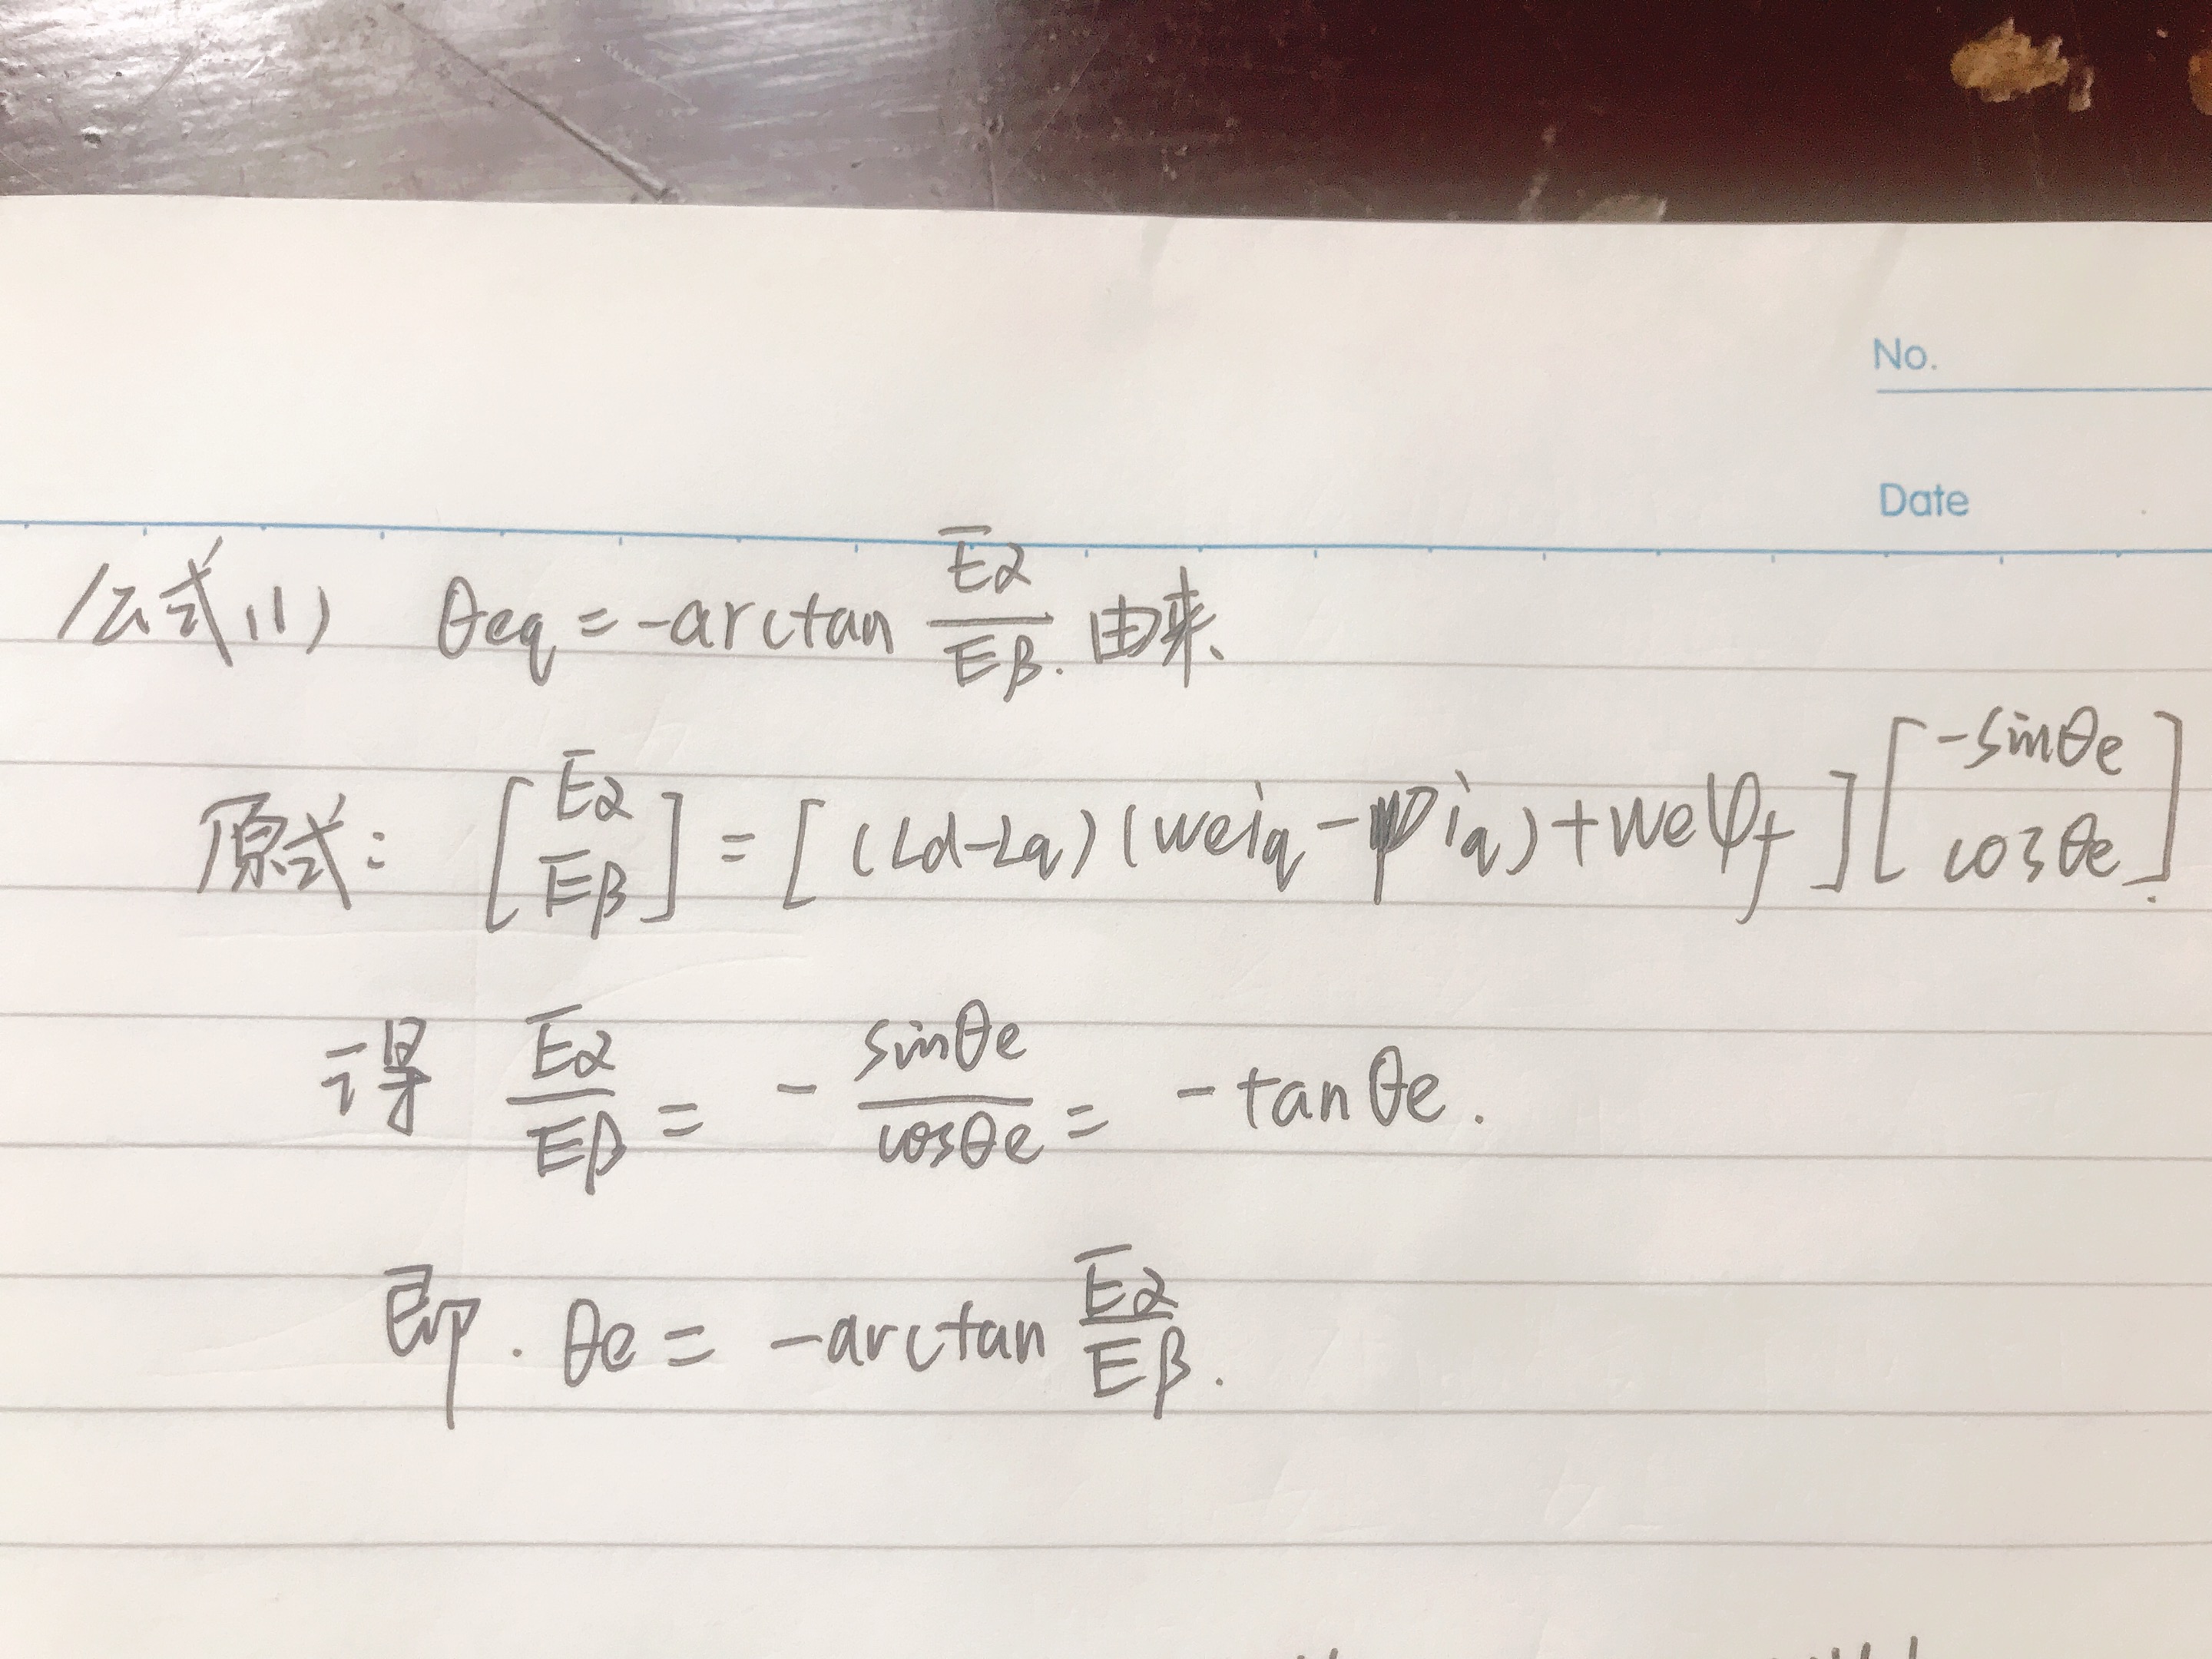 No.
Date
公式(1) θeq = -arctan Eα/Eβ. 由来、
原式: [Eα Eβ] = [(Ld-Lq)(weiq - p iq) + weψf] [-sinθe cosθe].
得 Eα/Eβ = - sinθe/cosθe = -tanθe.
即. θe = -arctan Eα/Eβ.